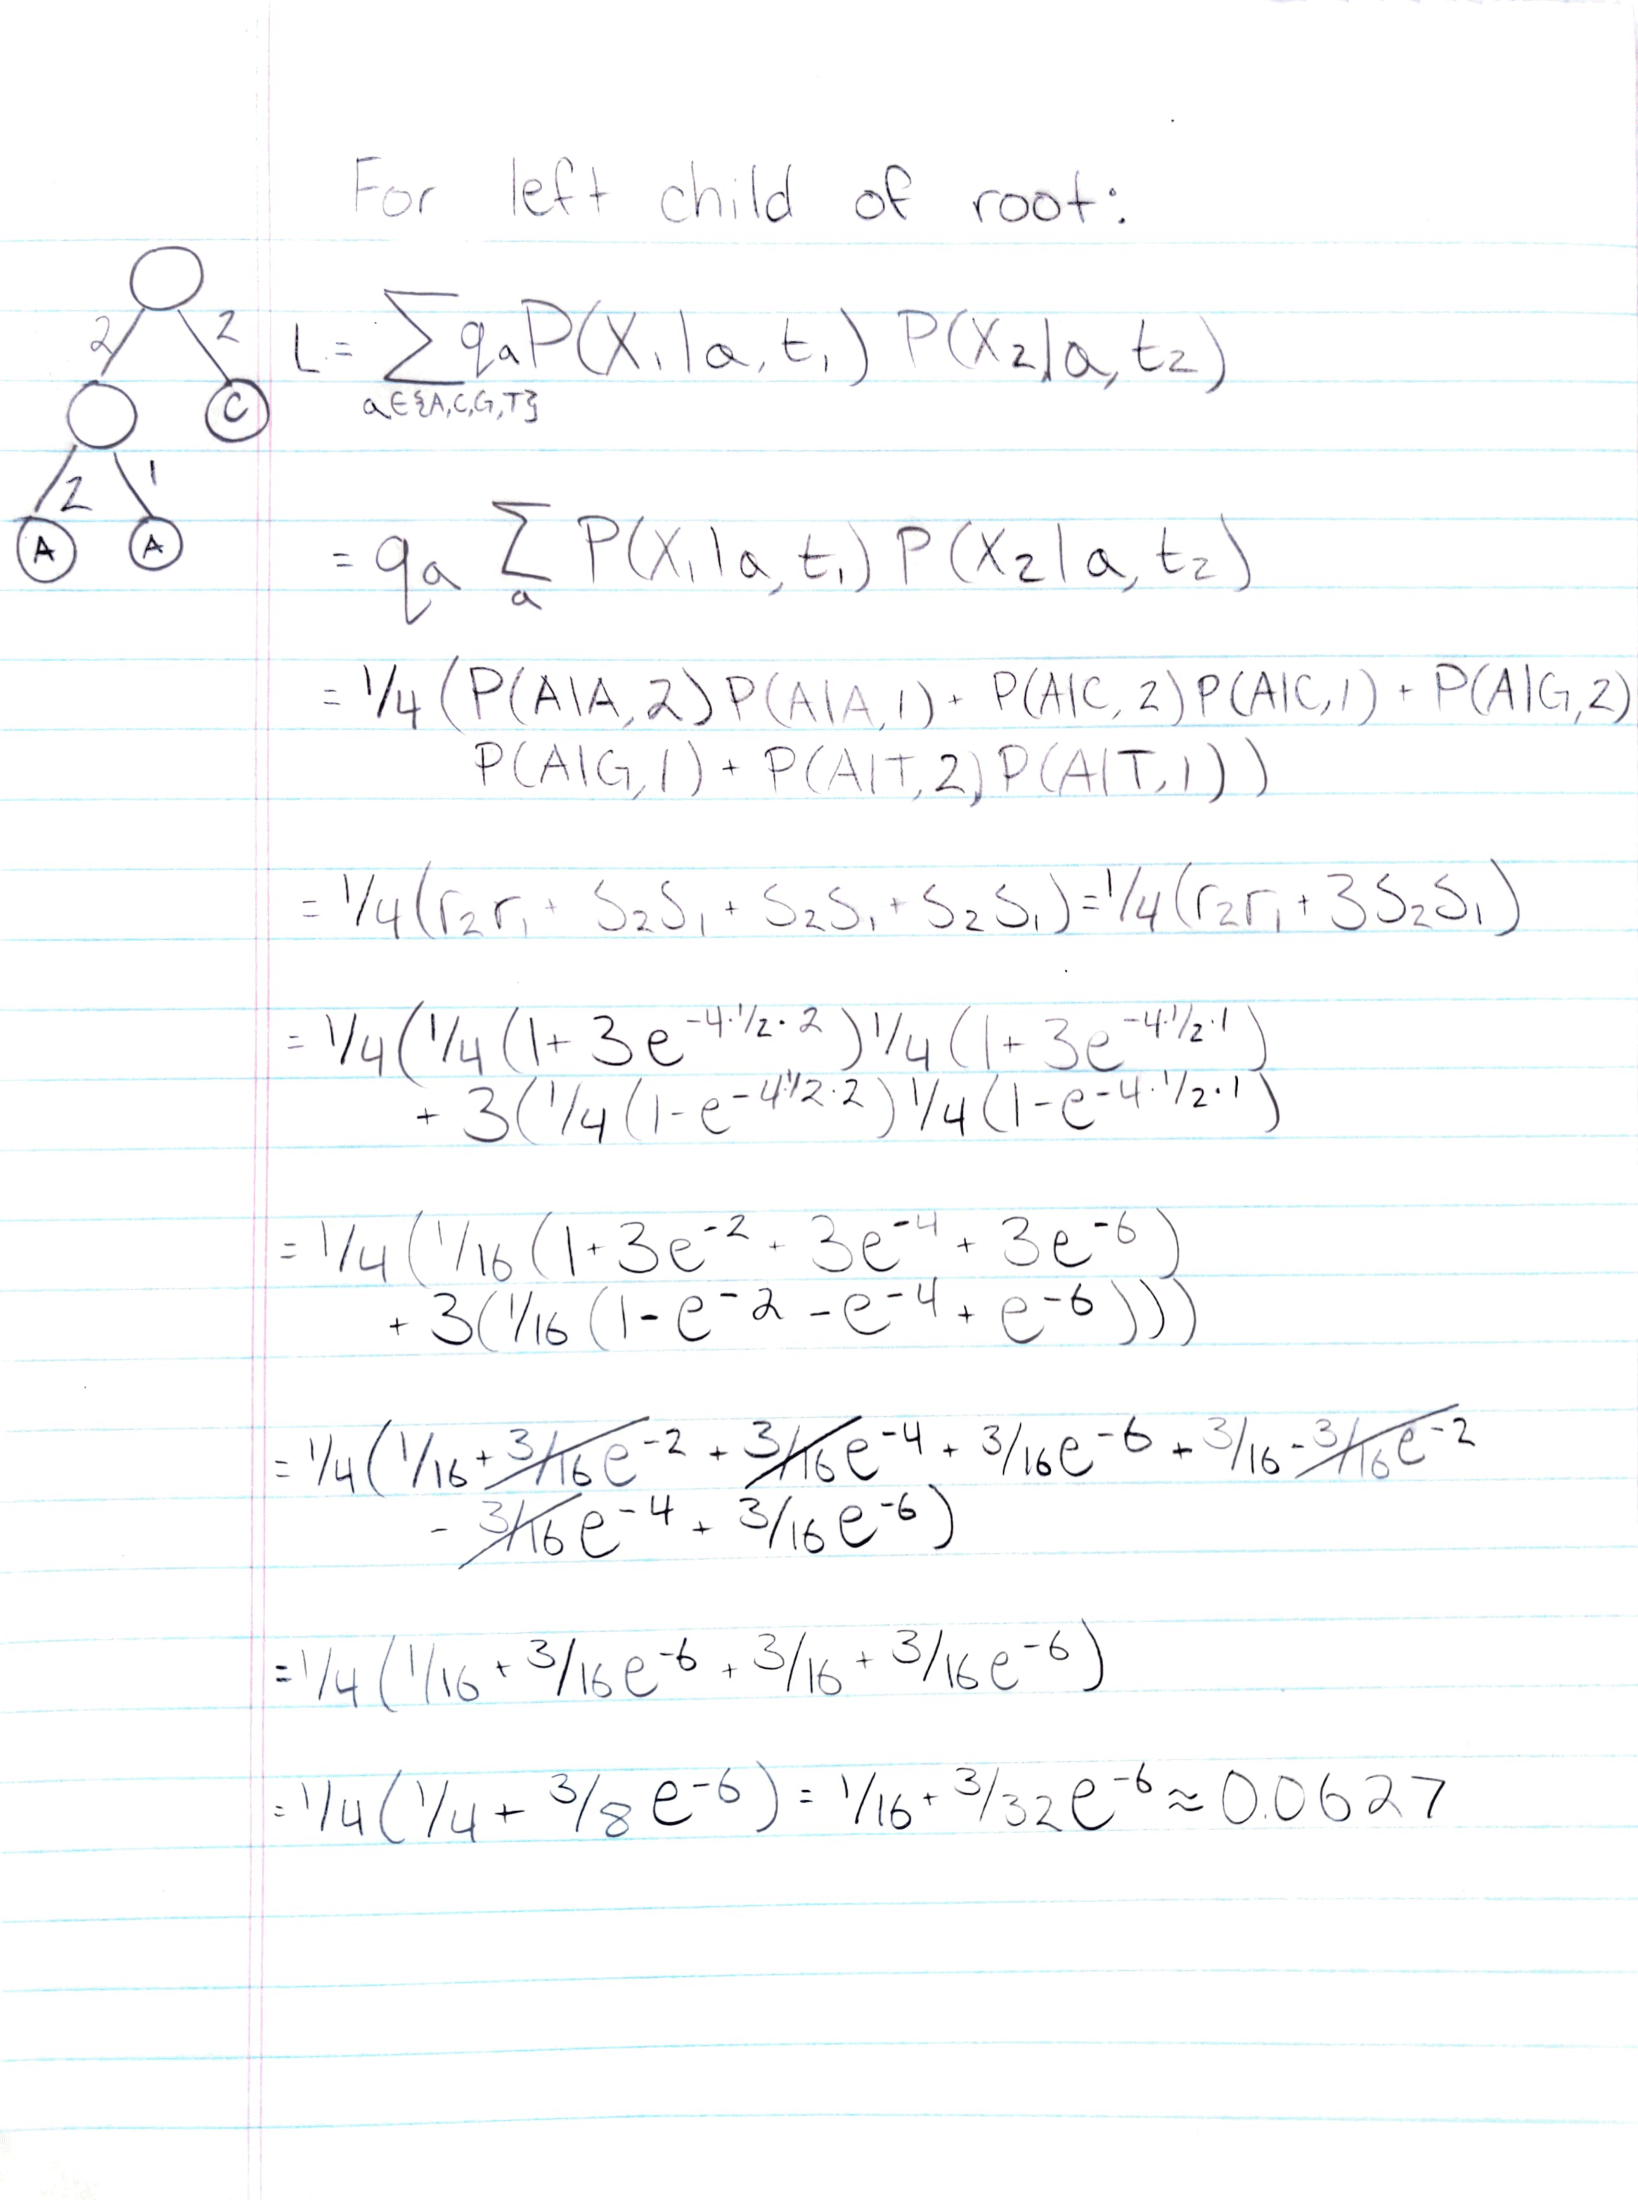 For left child of root:
2 2
L = ∑ qₐP(X₁|a,t₁) P(X₂|a,t₂)
a∈{A,C,G,T}
C
2 1
A A
= qₐ ∑ P(X₁|a,t₁) P(X₂|a,t₂)
a
= 1/4 (P(A|A,2)P(A|A,1) + P(A|C,2)P(A|C,1) + P(A|G,2)
P(A|G,1) + P(A|T,2)P(A|T,1))
= 1/4(r₂r₁ + S₂S₁ + S₂S₁ + S₂S₁) = 1/4(r₂r₁ + 3S₂S₁)
= 1/4(1/4(1+3e^-4·1/2·2)1/4(1+3e^-4·1/2·1)
+ 3(1/4(1-e^-4·1/2·2)1/4(1-e^-4·1/2·1)
= 1/4(1/16(1+3e^-2 + 3e^-4 + 3e^-6)
+ 3(1/16(1-e^-2 - e^-4 + e^-6)))
= 1/4(1/16 + 3/16e^-2 + 3/16e^-4 + 3/16e^-6 + 3/16 - 3/16e^-2
- 3/16e^-4 + 3/16e^-6)
= 1/4(1/16 + 3/16e^-6 + 3/16 + 3/16e^-6)
= 1/4(1/4 + 3/8e^-6) = 1/16 + 3/32e^-6 ≈ 0.0627